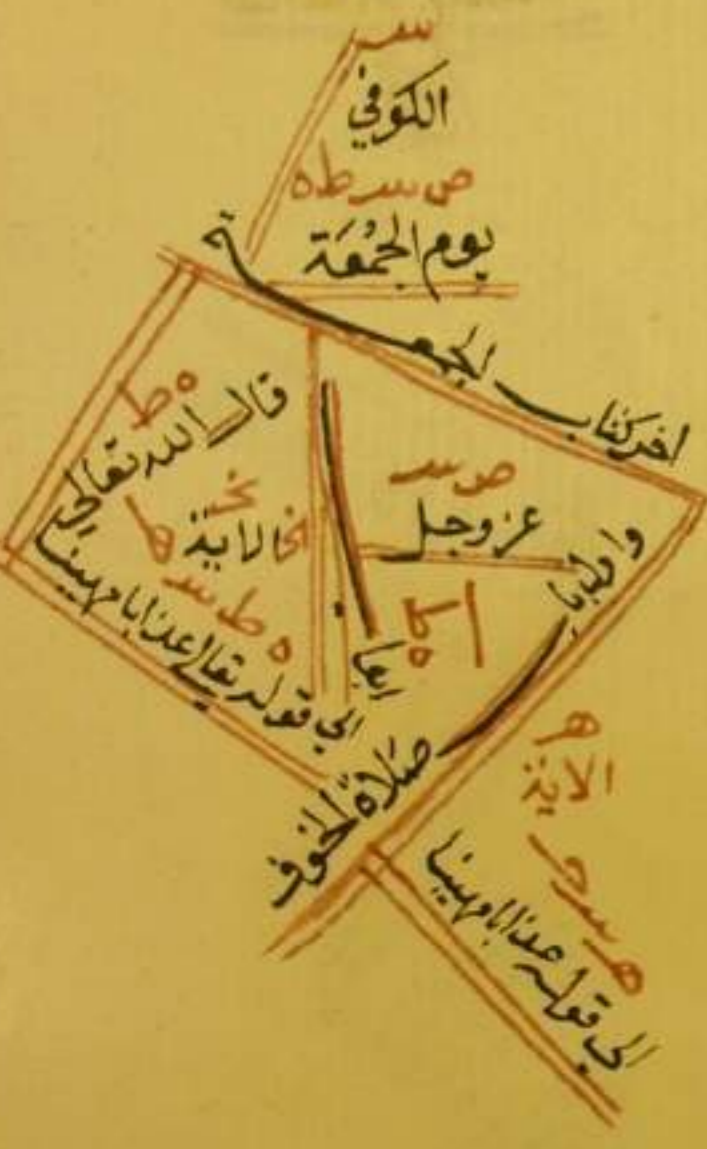 سـ
الكوفي
ص سـ ط ه
يوم الجمعة
اخر كتاب الجمعة
ه ط
قال الله تعالى
ص سـ
عز وجل
نخـ
الاية
ه ط سـ ط
الى قوله تعالى عذابا مهينا
صلاة الخوف
هـ
الاية
الى قوله عذابا مهينا